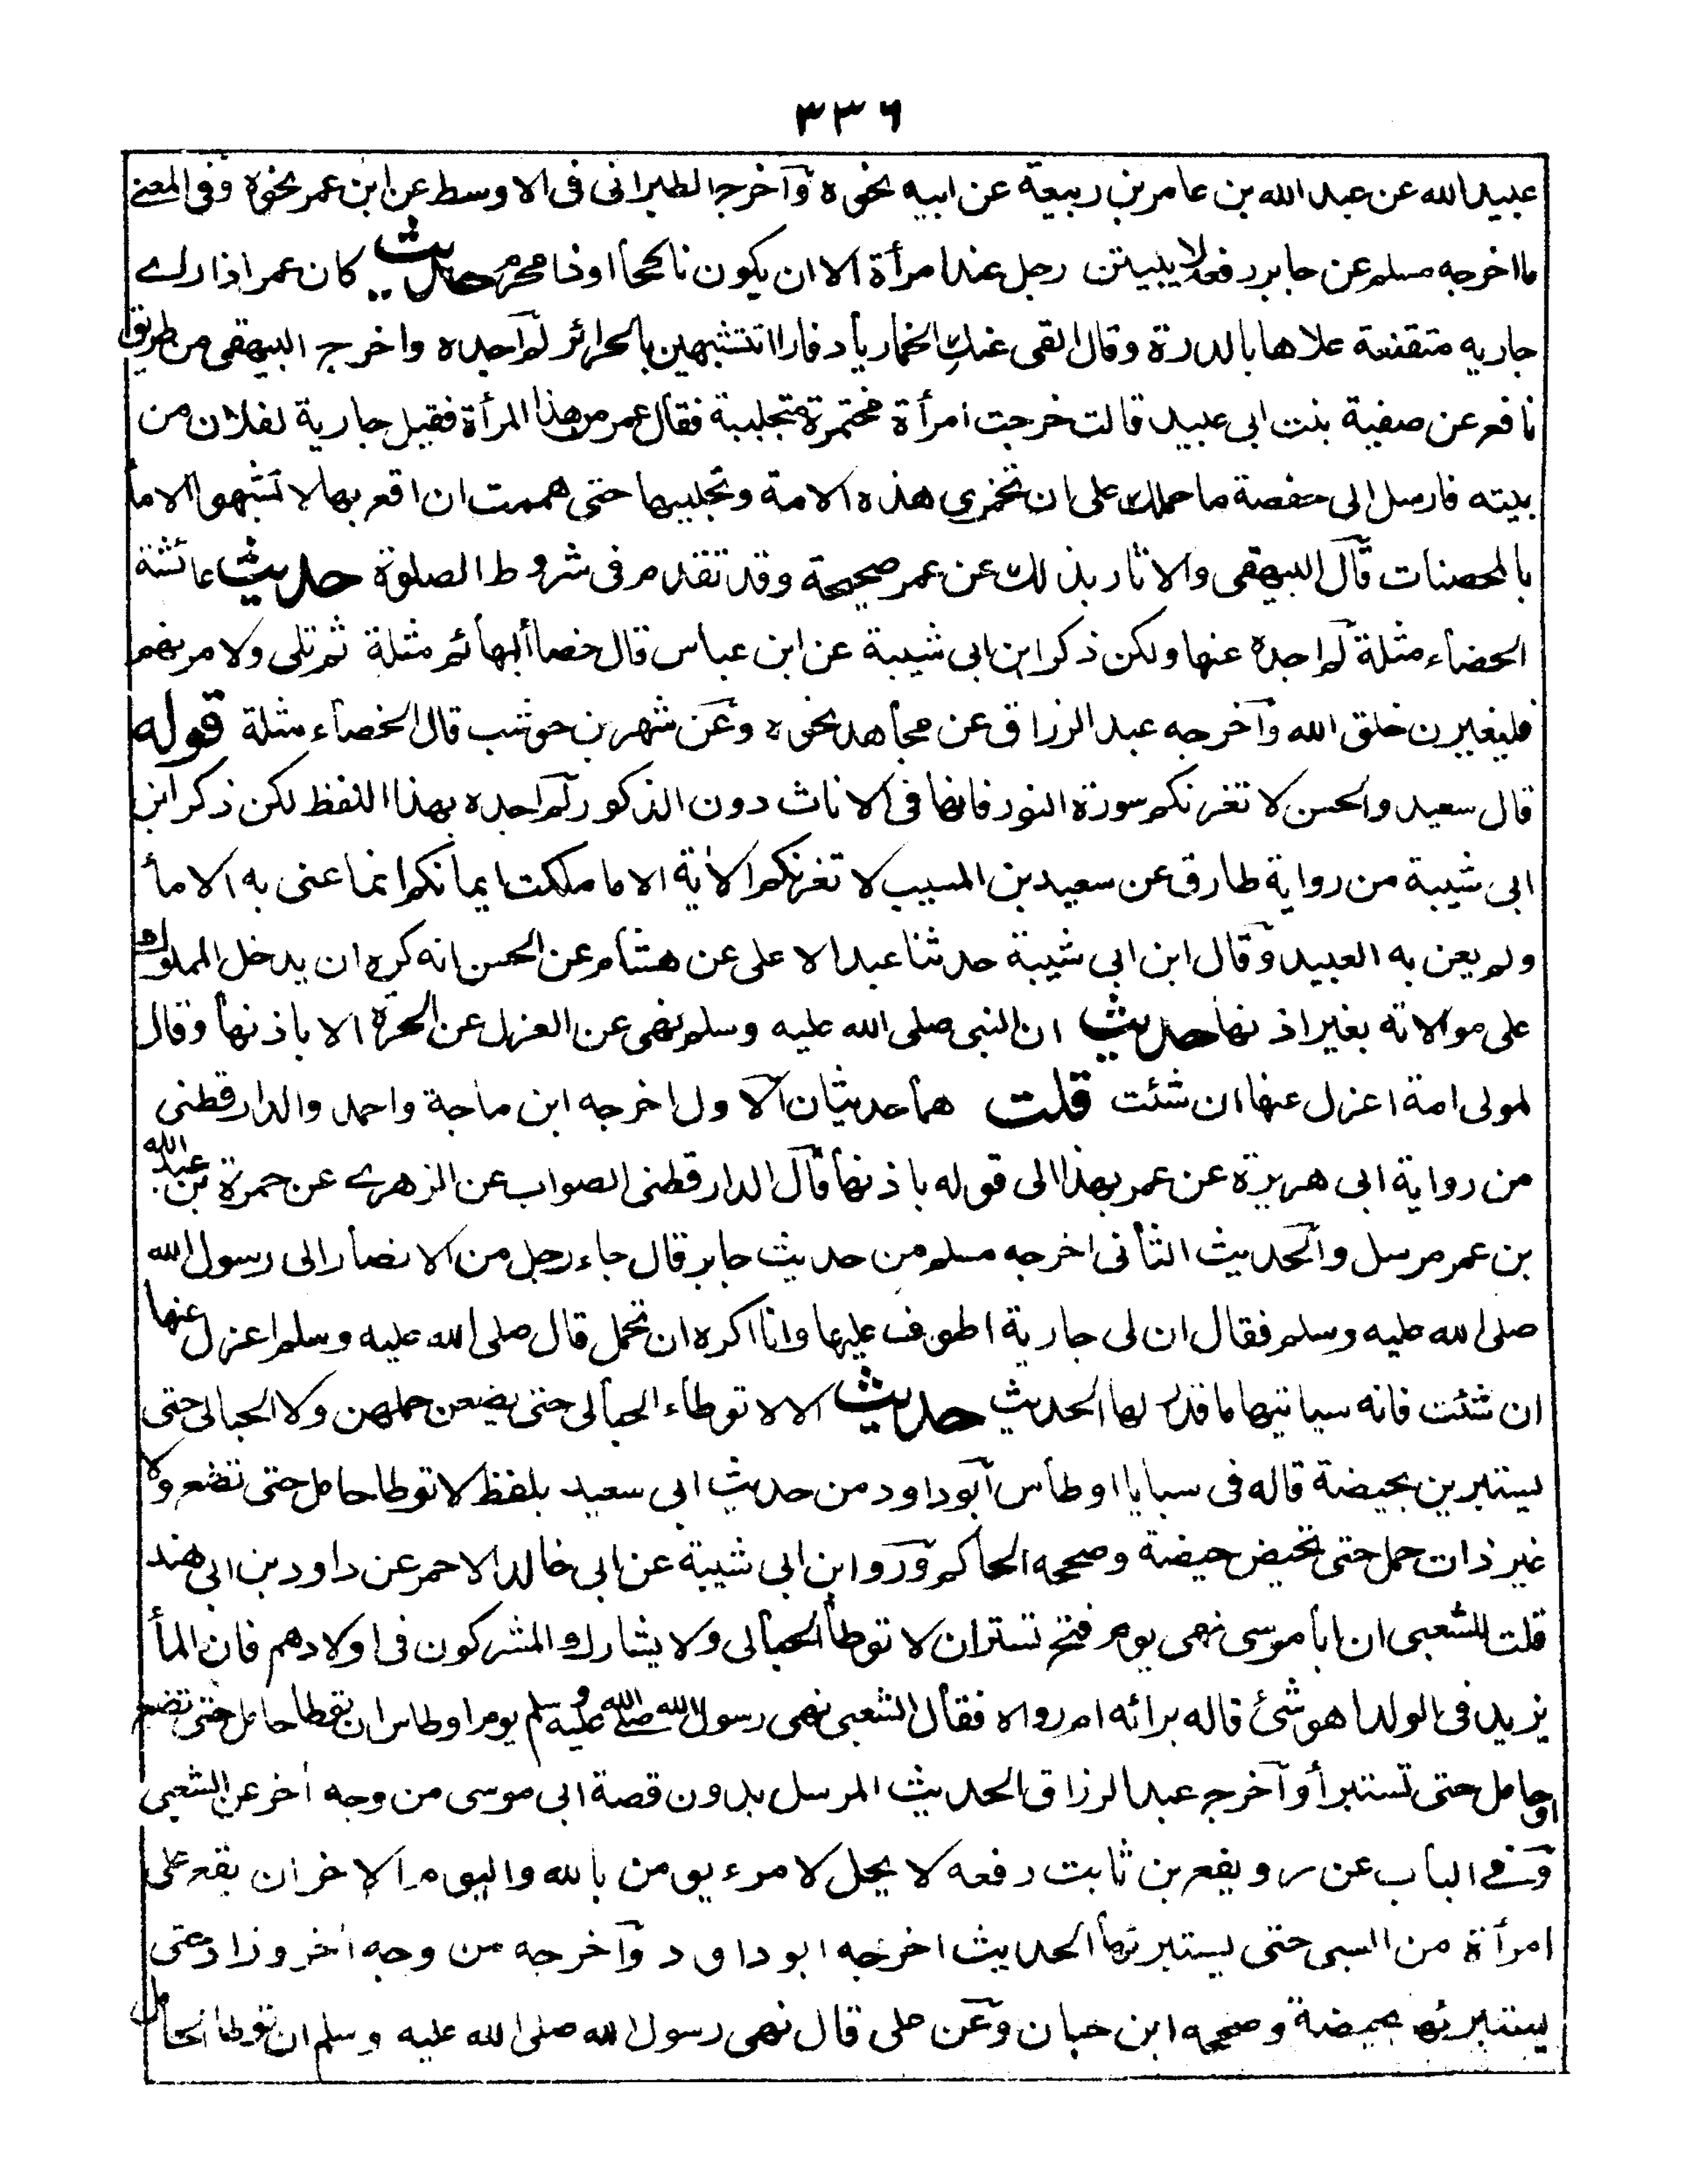 ٣٣٦
عبيد الله عن عبد الله بن عامر بن ربيعة عن ابيه نحوه وآخرجه الطبرانى فى الاوسط عن ابن عمر نحوه وفى المعنے
ما اخرجه مسلم عن جابر رفعه لا يبيتن رجل عند امرأة الا ان يكون ناكحا او ذا محرم حديث كان عمر اذا رأے
جاريه متقنعة علاها بالدرة وقال القى عنك الخمار يا دفار اتتشبهين بالحرائر لم اجده واخرجه البيهقى من طريق
نافع عن صفية بنت ابى عبيد قالت خرجت امرأة مختمرة متجلببة فقال عمر من هذا المرأة فقيل جارية لفلان من
بيته فارسل الى حفصة ما حملك على ان تخمرى هذه الامة وتجلببيها حتى هممت ان اقع بها لا تشبهوا الاماء
بالمحصنات قال البيهقى والاثار بذلك عن عمر صحيحة وقد تقدم فى شروط الصلوة حديث عائشة
الخصاء مثلة لم اجده عنها ولكن ذكر ابن ابى شيبة عن ابن عباس قال خصاء البهائم مثلة ثم تلى ولامرنهم
فليغيرن خلق الله وآخرجه عبد الرزاق عن مجاهد نحوه وعن شهر بن حوشب قال الخصاء مثلة قوله
قال سعيد والحسن لا تغرنكم سورة النور فانها فى الاناث دون الذكور لم اجده بهذا اللفظ لكن ذكر ابن
ابى شيبة من رواية طارق عن سعيد بن المسيب لا تغرنكم الآية الا ما ملكت ايمانكم انما عنى به الاماء
ولم يعن به العبيد وقال ابن ابى شيبة حدثنا عبد الاعلى عن هشام عن الحسن انه كره ان يدخل المملوك
على مولاته بغير اذنها حديث ان النبى صلى الله عليه وسلم نهى عن العزل عن الحرة الا باذنها وقال
لمولى امة اعزل عنها ان شئت قلت هما حديثان الاول اخرجه ابن ماجة واحمد والدارقطنى
من رواية ابى هريرة عن عمر بهذا الى قوله باذنها قال الدارقطنى الصواب عن الزهرے عن حمزة بن عبد الله
بن عمر مرسل والحديث الثانى اخرجه مسلم من حديث جابر قال جاء رجل من الانصار الى رسول الله
صلى الله عليه وسلم فقال ان لى جارية اطوف عليها وانا اكره ان تحمل قال صلى الله عليه وسلم اعزل عنها
ان شئت فانه سياتيها ما قدر لها الحديث حديث الا لا توطاء الحبالى حتى يضعن حملهن ولا الحبالى حتى
يستبرين بحيضة قاله فى سبايا اوطاس آبو داود من حديث ابى سعيد بلفظ لا توطا حامل حتى تضع ولا
غير ذات حمل حتى تحيض حيضة وصححه الحاكم وروا ابن ابى شيبة عن ابى خالد الاحمر عن داود بن ابى هند
قلت للشعبى ان ابا موسى نهى يوم فتح تستر ان لا توطا الحبالى ولا يشارك المشركون فى اولادهم فان الماء
يزيد فى الولد اهو شئ قاله برائه ام رواه فقال الشعبى نهى رسول الله صلى الله عليه وسلم يوم اوطاس ان توطا حامل حتى تضع
او حامل حتى تستبرأ وآخرجه عبد الرزاق الحديث المرسل بدون قصة ابى موسى من وجه اخر عن الشعبى
وفے الباب عن رويفع بن ثابت رفعه لا يحل لامرء يومن بالله واليوم الاخر ان يقع على
امرأة من السبى حتى يستبرئها الحديث اخرجه ابو داود وآخرجه من وجه اخر وزاد حتى
يستبرئها بحيضة وصححه ابن حبان وعن على قال نهى رسول الله صلى الله عليه وسلم ان توطا الحامل